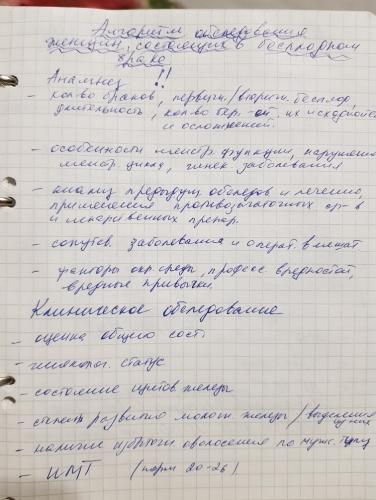 Алгоритм обследования
женщин, состоящих в бесплодном
браке
Анамнез !!
- кол-во браков, первичн./вторичн. бесплод,
длительность, кол-во бер-ей, их исходы
и осложнений.
- особенности менстр. функции, нарушения
менстр. цикла, гинек заболевания
- анализ предыдущ обследов и лечения,
применения противозачаточных ср-в
и лекарственных препар.
- сопутств. заболевания и операт. вмешат
- факторы окр среды, професс вредностей,
вредные привычки.
Клиническое обследование
- оценка общего сост.
- гинеколог. статус
- состояние щитов железы
- степень развития молочн. железы/выделения
из них
- наличие избыточн оволосения по муж. типу
- ИМТ (норм 20-26)